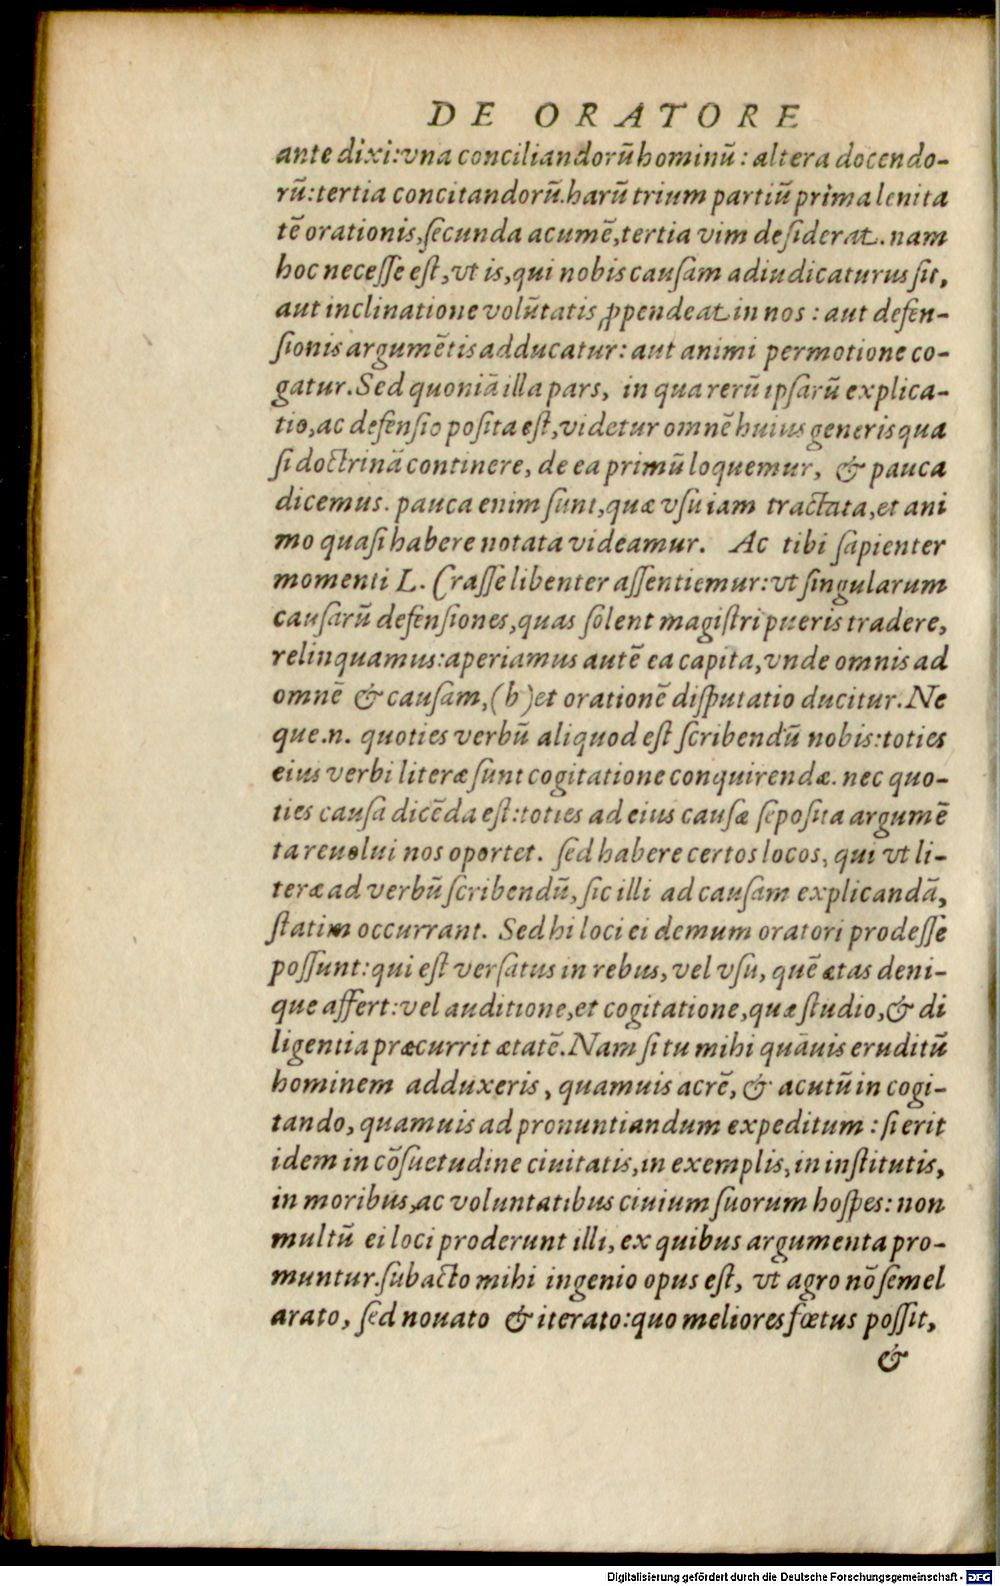 DE ORATORE
ante dixi:vna conciliandorũ hominũ: altera docendo-
rũ:tertia concitandorũ.harũ trium partiũ prima lenita
tẽ orationis,ſecunda acumẽ,tertia vim deſiderat. nam
hoc neceſſe eſt,vt is,qui nobis cauſam adiudicaturus ſit,
aut inclinatione volũtatis ꝓpendeat in nos: aut defen-
ſionis argumẽtis adducatur: aut animi permotione co-
gatur.Sed quoniã illa pars, in qua rerũ ipſarũ explica-
tio,ac defenſio poſita eſt,videtur omnẽ huius generis qua
ſi doctrinã continere, de ea primũ loquemur, & pauca
dicemus. pauca enim ſunt,quæ vſu iam tractata,et ani
mo quaſi habere notata videamur. Ac tibi ſapienter
momenti L. Craſſe libenter aſſentiemur:vt ſingularum
cauſarũ defenſiones,quas ſolent magiſtri pueris tradere,
relinquamus:aperiamus autẽ ea capita,vnde omnis ad
omnẽ & cauſam,(b)et orationẽ diſputatio ducitur.Ne
que.n. quoties verbũ aliquod eſt ſcribendũ nobis:toties
eius verbi literæ ſunt cogitatione conquirendæ. nec quo-
ties cauſa dicẽda eſt:toties ad eius cauſæ ſepoſita argumẽ
ta reuolui nos oportet. ſed habere certos locos, qui vt li-
teræ ad verbũ ſcribendũ, ſic illi ad cauſam explicandã,
ſtatim occurrant. Sed hi loci ei demum oratori prodeſſe
poſſunt:qui eſt verſatus in rebus, vel vſu, quẽ ætas deni-
que affert:vel auditione,et cogitatione,quæ ſtudio,& di
ligentia præcurrit ætatẽ.Nam ſi tu mihi quãuis eruditũ
hominem adduxeris, quamuis acrẽ, & acutũ in cogi-
tando, quamuis ad pronuntiandum expeditum: ſi erit
idem in cõſuetudine ciuitatis,in exemplis,in inſtitutis,
in moribus,ac voluntatibus ciuium ſuorum hoſpes: non
multũ ei loci proderunt illi, ex quibus argumenta pro-
muntur.ſubacto mihi ingenio opus eſt, vt agro nõ ſemel
arato, ſed nouato & iterato:quo meliores fœtus poſſit,
&
Digitalisierung gefördert durch die Deutsche Forschungsgemeinschaft - DFG